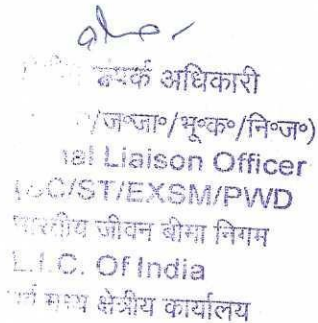 संपर्क अधिकारी
/ज॰जा॰/भू॰क॰/नि॰ज॰)
Liaison Officer
/ST/EXSM/PWD
भारतीय जीवन बीमा निगम
L.I.C. Of India
मध्य क्षेत्रीय कार्यालय